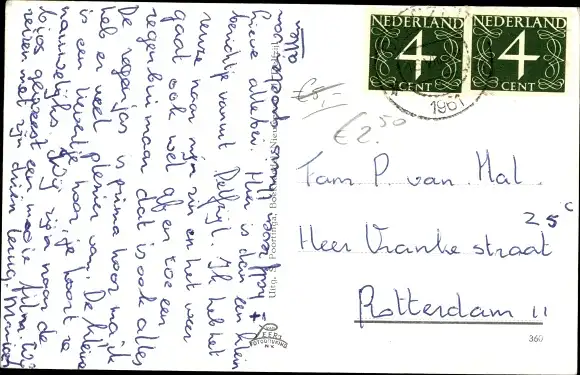 NEDERLAND
4
CENT
NEDERLAND
4
CENT
1961
€5,-
€2.50
Fam P. van Mal.
25 c
Heer Vrankestraat
Rotterdam 11
360
Lieve allebei. Hier is dan een klein
berichtje vanuit Delfzijl. Ik heb het
reuze naar mijn zin en het weer
gaat ook wel af en toe een
regenbui maar dat is ook alles
De regenjas is prima hoor ma, ik
heb er veel plezier van. De kleine
is een lieverdje hoor, je hoort ze
nauwelijks. Wij zijn naar de
bios geweest een mooie film. Wij
reizen met zijn drieën terug.